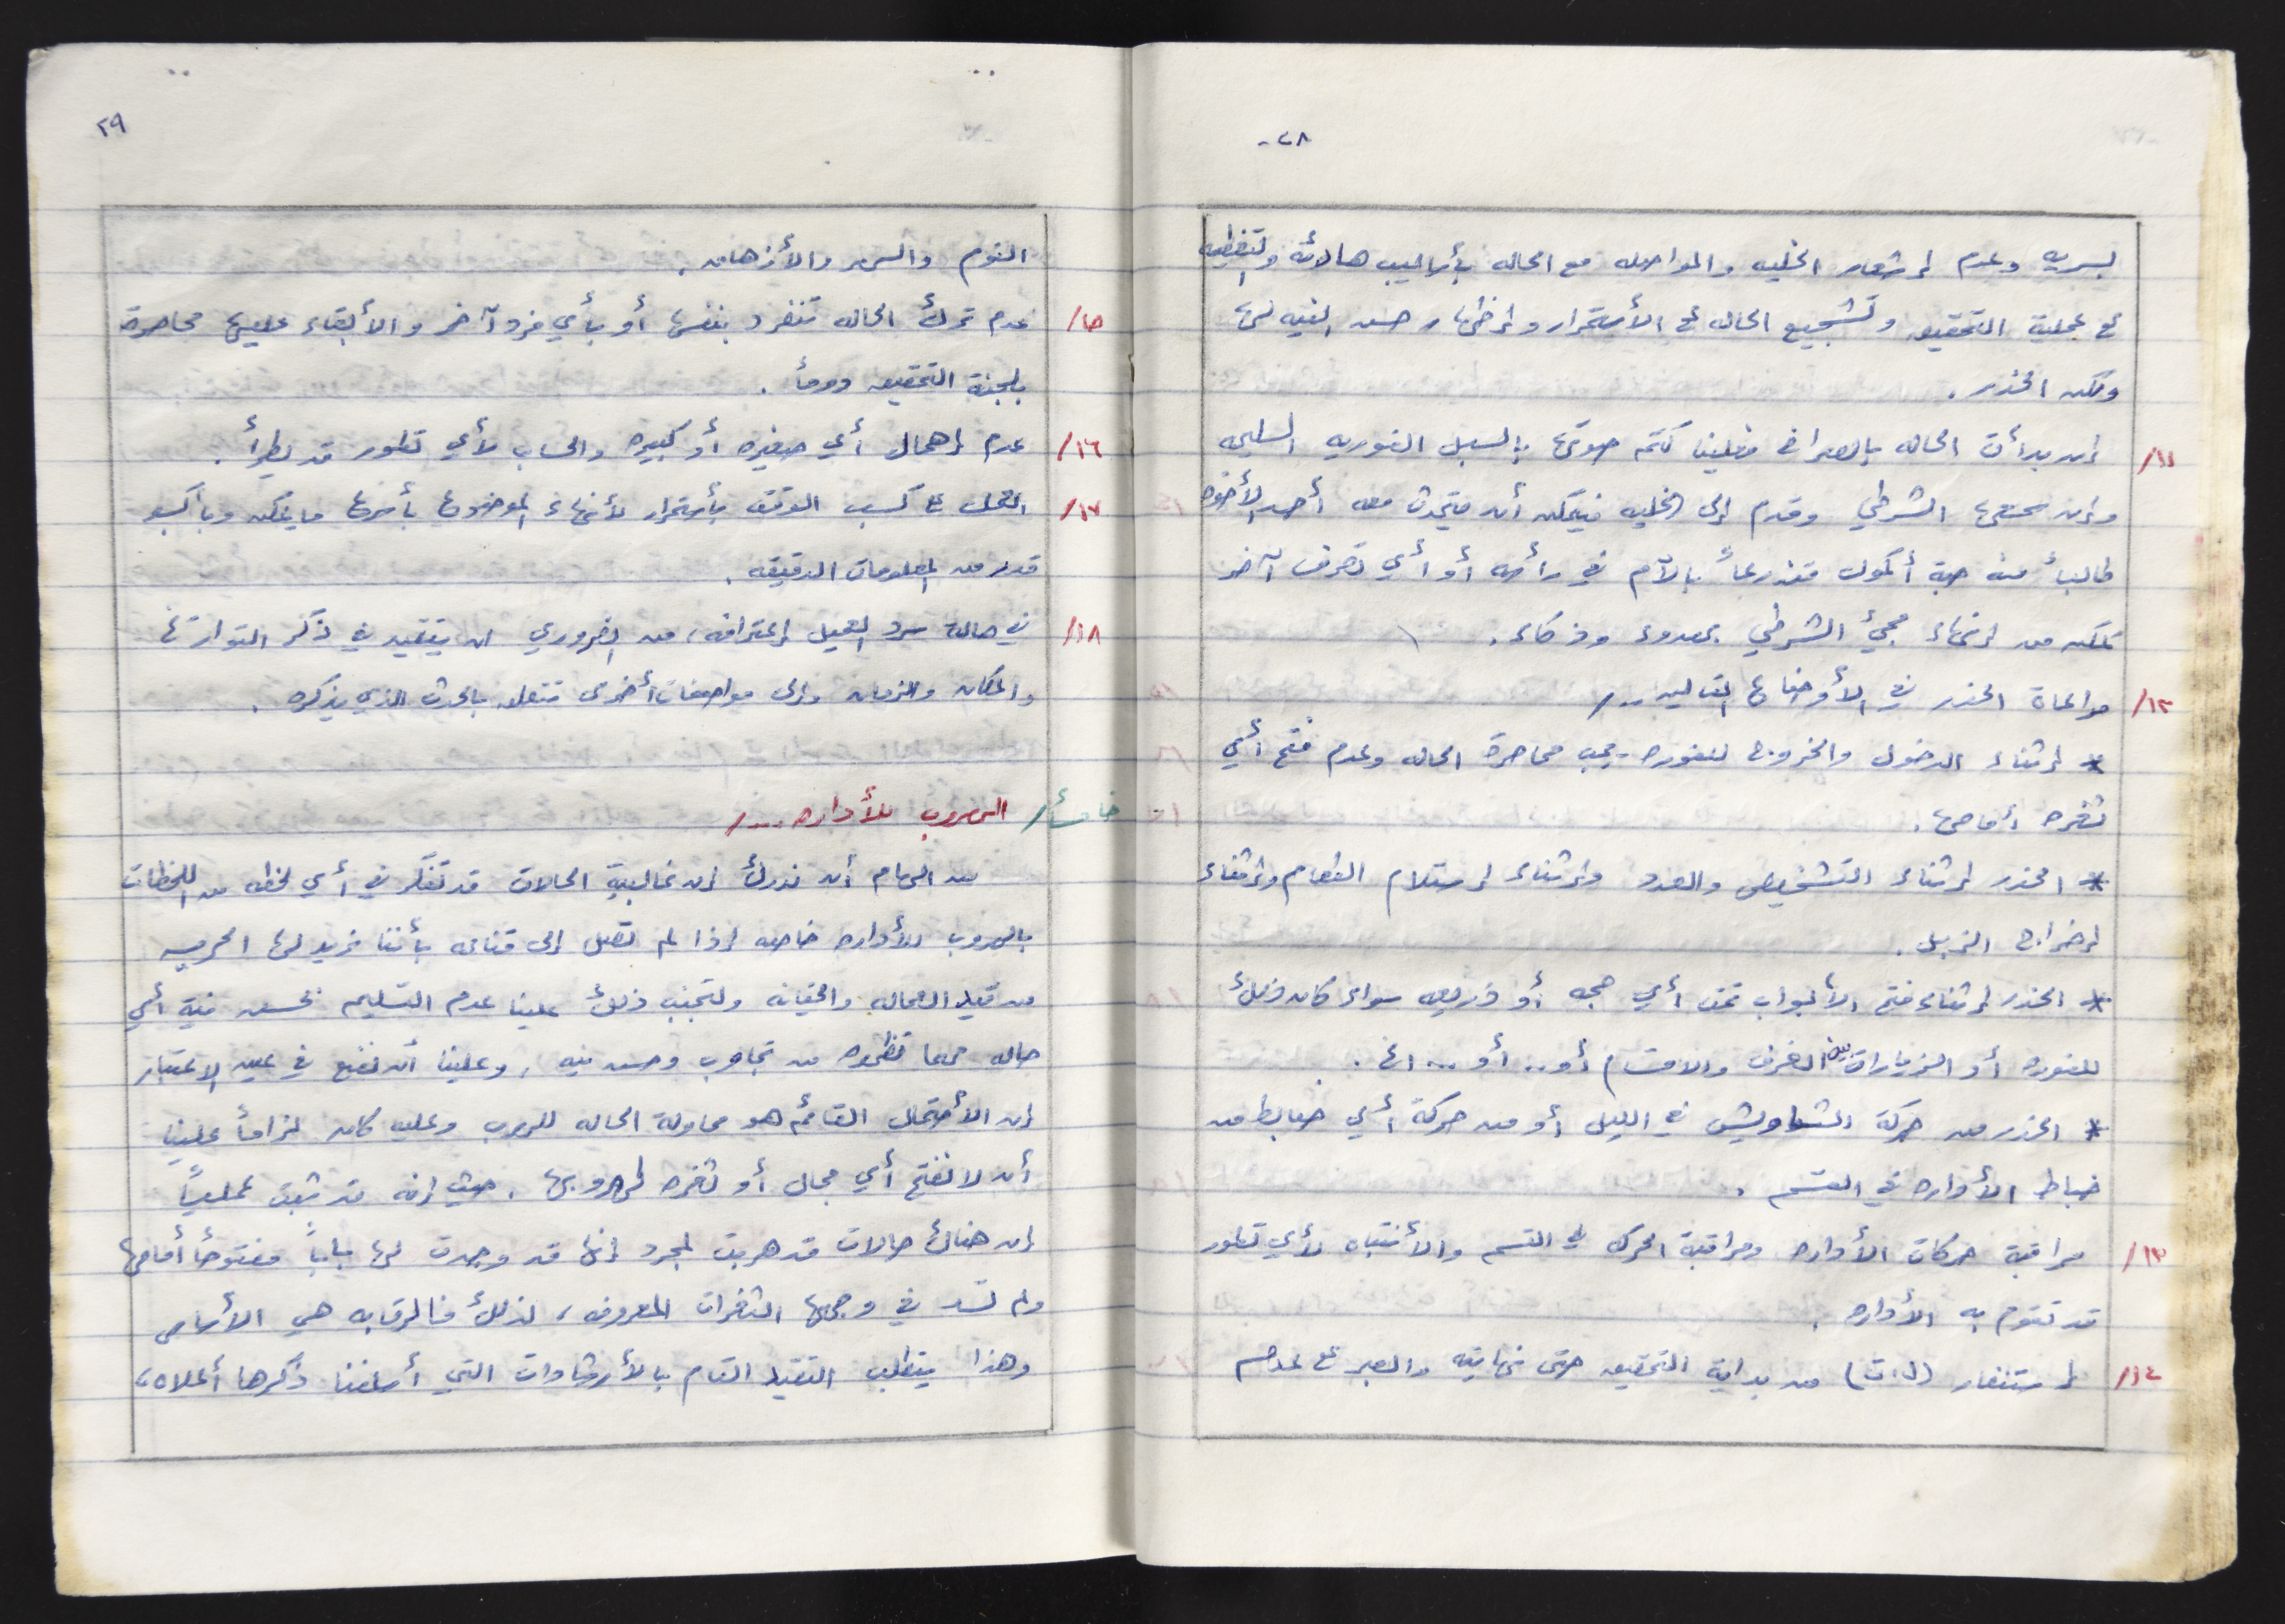 -٢٨
بسريه وعدم إشعار الخليه والمواصله مع الحاله بأساليب هادئة والتغطيه
على عملية التحقيق وتشجيع الحاله على الأستمرار وإظهار حسن النيه لها
ولكن الحذر .
١١/ إن بدأت الحاله بالصراخ فعلينا كتم صوتها بالسبل الفوريه السليمه
وإن سمعها الشرطي وقدم إلى الخليه فيمكن أن يتحدث معه أحد الأخوه
طالباً منه حبة أكمول متذرعاً بالآم في رأسه أو أي تصرف آخر
يمكن من إنهاء مجئ الشرطي بهدوء وذكاء .
١٢/ مراعاة الحذر في الأوضاع التاليه ../
* إثناء الدخول والخروج للفوره - يجب محاصرة الحاله وعدم فتح أي
ثغره أمامها .
* الحذر إثناء التشخيص والعدد وإثناء إستلام الطعام وإثناء
إخراج الزبل .
* الحذر إثناء فتح الأبواب تحت أي حجه أو ذريعه سواء كان ذلك
للفوره أو الزيارات بين الغرف والاقسام أو .. أو ... الخ .
* الحذر من حركة الشاويش في الليل أو من حركة أي ضابط من
ضباط الأداره في القسم .
١٣/ مراقبة حركات الأداره ومراقبة الحركه في القسم والأنتباه لأي تطور
قد تقوم به الأداره .
١٤/ إستنفار (ل.ت) من بداية التحقيق حتى نهايته والصبر على عدم
٢٩
النوم والسهر والأزهاق .
١٥/ عدم ترك الحاله تنفرد بنفسها أو بأي فرد آخر والأبقاء عليها محاصرة
بلجنة التحقيق دوماً .
١٦/ عدم إهمال أي صغيره أو كبيره والحساب لأي تطور قد يطرأ .
١٧/ العمل على كسب الوقت بأستمرار لأنهاء الموضوع بأسرع ما يمكن وبأكبر
قدر من المعلومات الدقيقه .
١٨/ في حالة سرد العميل إعترافه ، من الضروري ان يتقيد في ذكر التواريخ
والمكان والزمان وإلى مواصفات أخرى تتعلق بالحدث الذي يذكره .
خامساً/ الهروب للأداره .../
من الهام أن ندرك إن غالبية الحالات قد تفكر في أي لحظه من اللحظات
بالهروب للأداره خاصه إذا لم تصل إلى قناعه بأننا نريد لها الحريه
من قيد العماله والخيانه ولتجنب ذلك علينا عدم التسليم بحسن نية أي
حاله مهما تظهره من تجاوب وحسن نيه ، وعلينا أن نضع في عين الاعتبار
إن الأحتمال القائم هو محاولة الحاله للهرب وعليه كان لزاماً علينا
أن لا نفتح أي مجال أو ثغره لهروبها . حيث إنه قد ثبت عملياً
إن هناك حالات قد هربت لمجرد إنها قد وجدت لها باباً مفتوحاً أمامها
ولم تسد في وجهها الثغرات المعروفه ، لذلك فالرقابه هي الأساس
وهذا يتطلب التقيد التام بالأرشادات التي أسلفنا ذكرها أعلاه ،